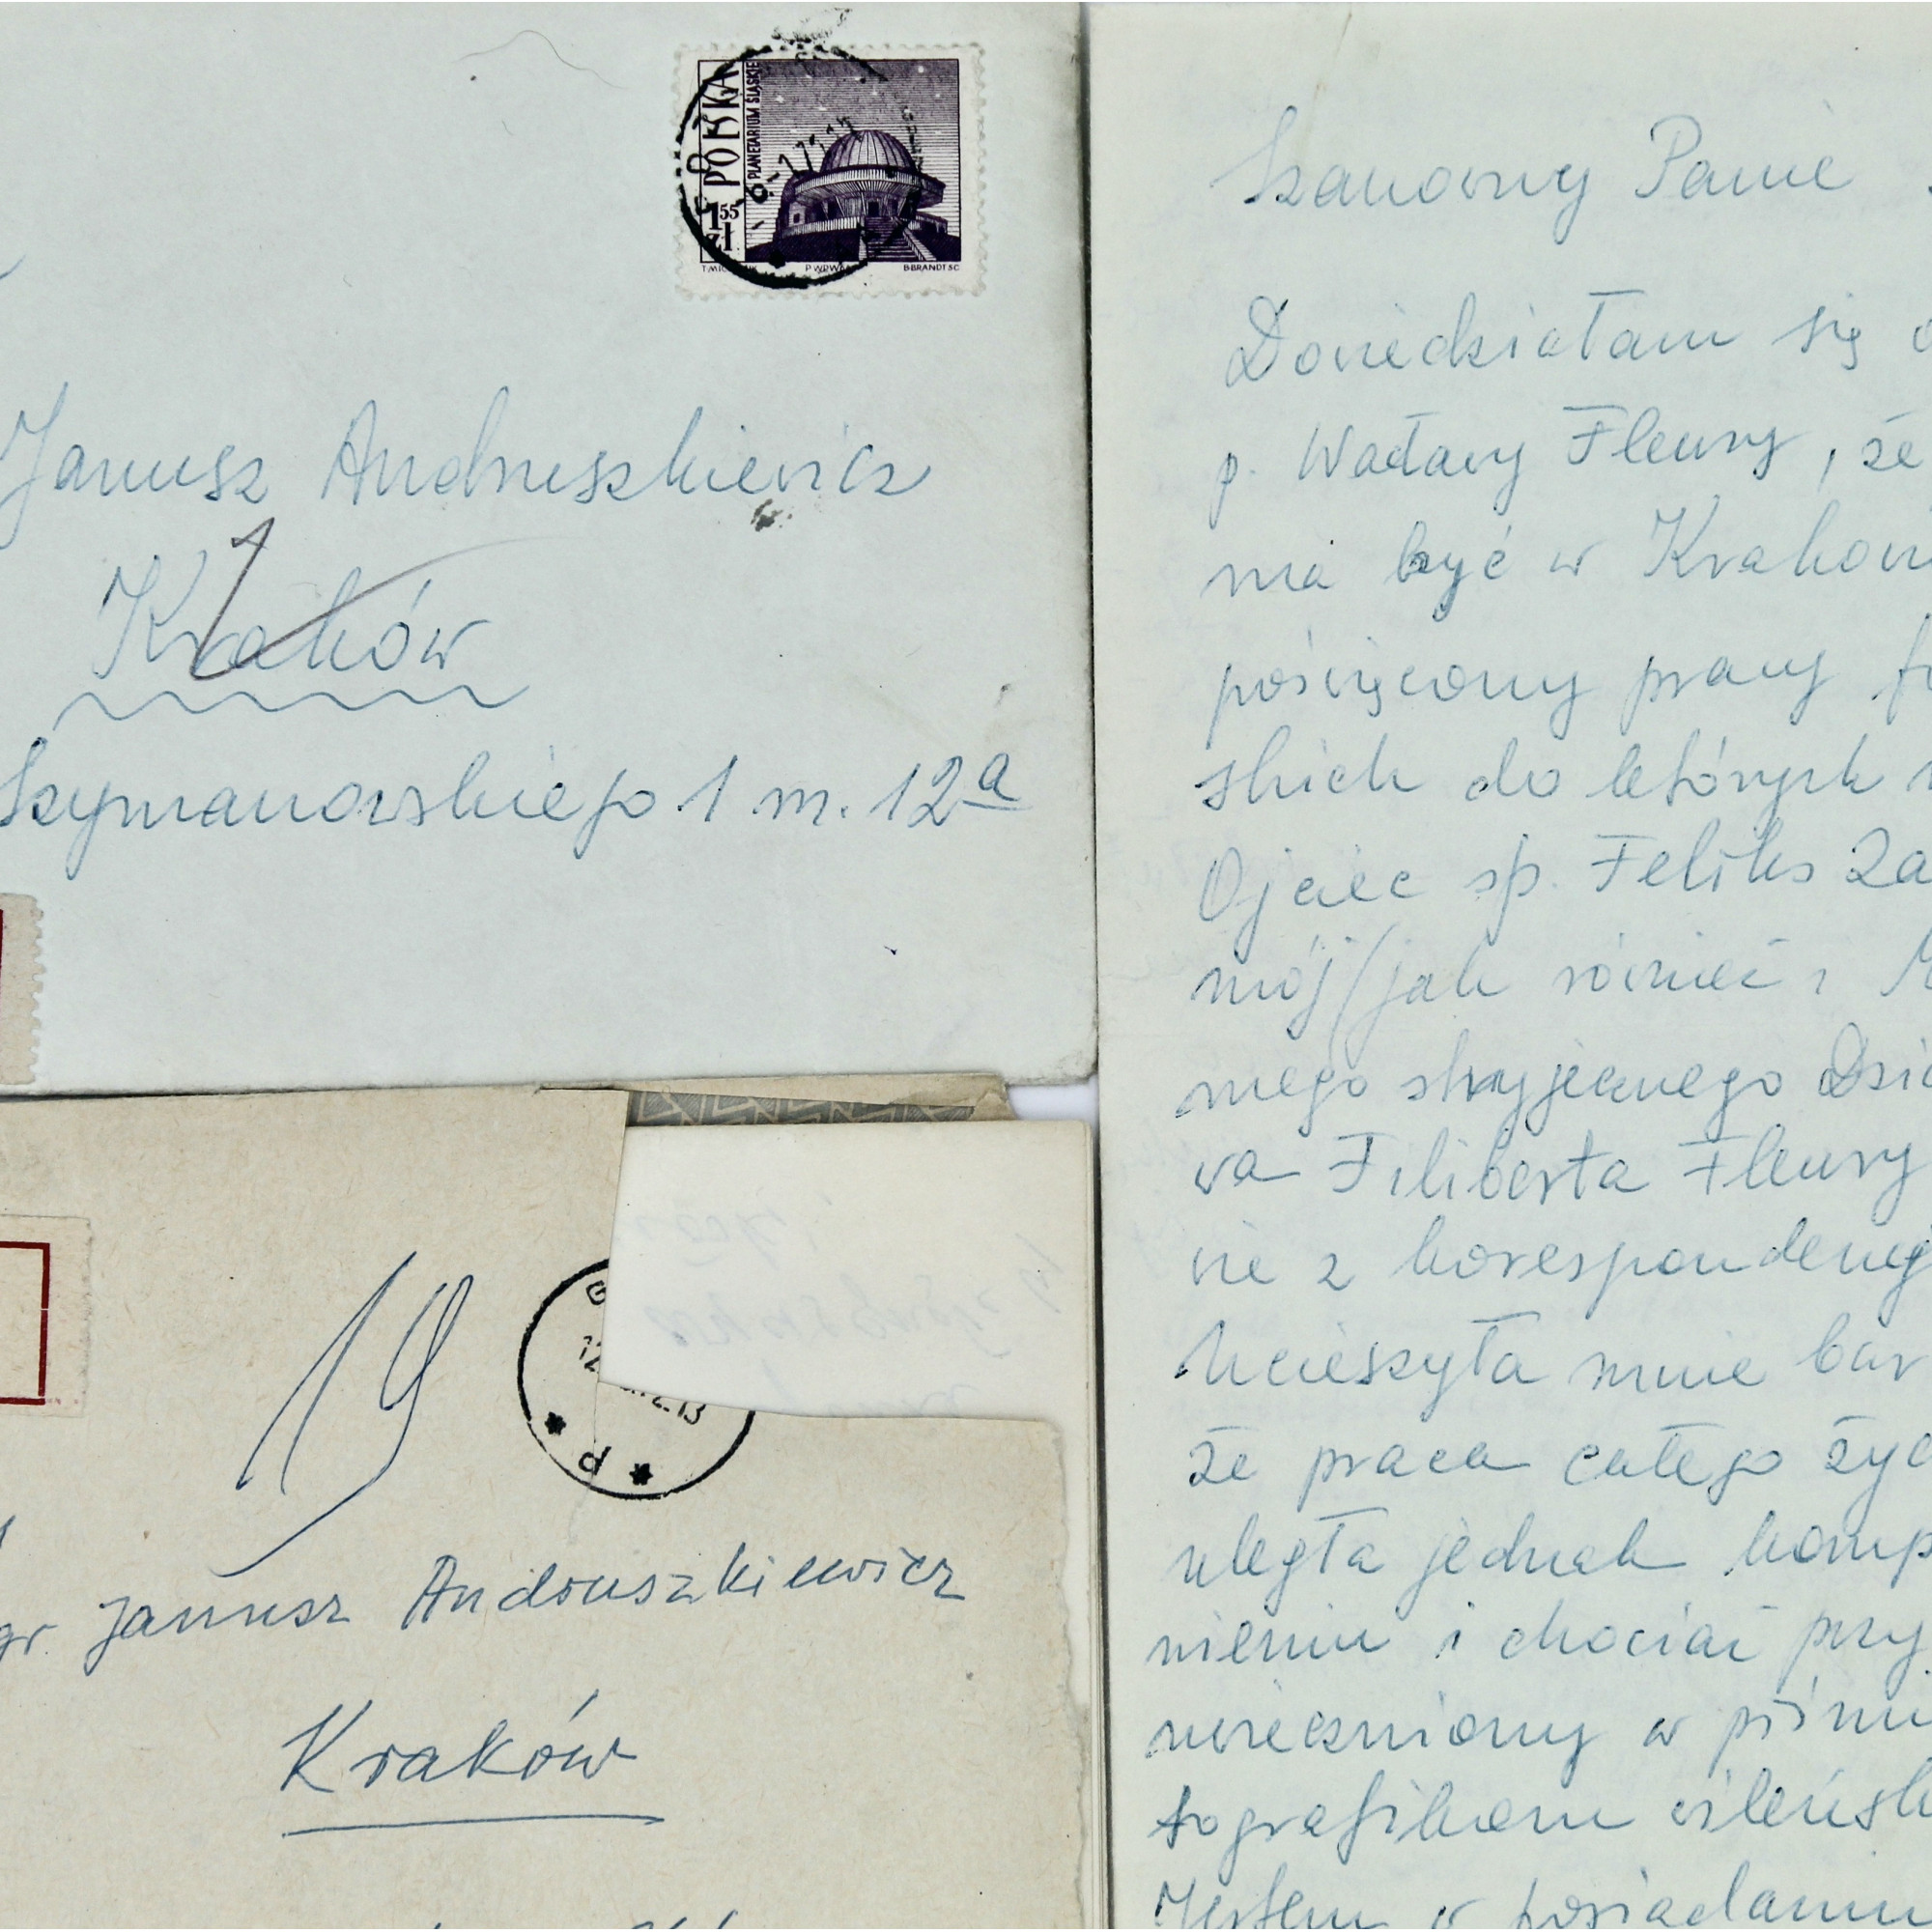 POLSKA
PLANETARIUM ŚLĄSKIE
1 55 zł
PWPW
B.BRANDT SC.
Janusz Andruszkiewicz
Kraków
1
Szymanowskiego 1 m. 12a
19
12
13
P
gr. Janusz Andruszkiewicz
Kraków
Szanowny Panie
Dowiedziałam się
p. Wacławy Fleury, że
ma być w Krakow
poświęcony pracy fo
skich do których
Ojciec śp. Feliks Za
mój (jak również i
nego stryjecznego Dzia
wa Filiberta Fleury
nie z korespondencj
Ucieszyła mnie bar
że praca całego życ
uległa jednak komp
nieniu i chociaż przy
wieczniony w piśmi
tografikom wileńsk
Jestem w posiadaniu